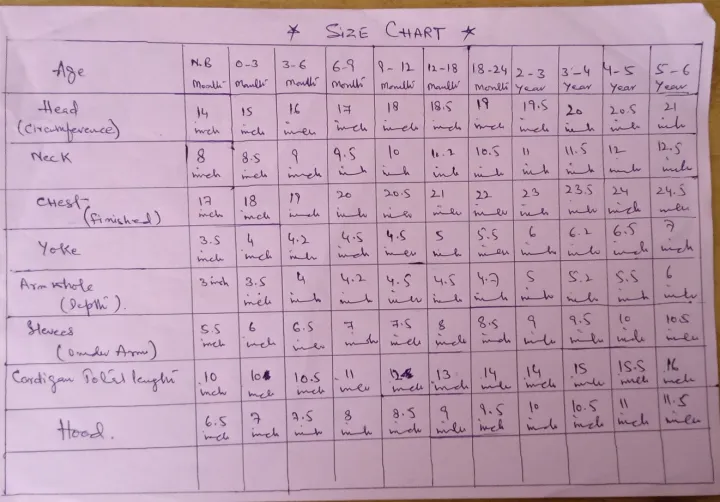 * SIZE CHART *
Age N.B Months 0-3 Months 3-6 Months 6-9 Months 9-12 Months 12-18 Months 18-24 Months 2-3 Year 3-4 Year 4-5 Year 5-6 Year
Head (Circumference) 14 inch 15 inch 16 inch 17 inch 18 inch 18.5 inch 19 inch 19.5 inch 20 inch 20.5 inch 21 inch
Neck 8 inch 8.5 inch 9 inch 9.5 inch 10 inch 11.2 inch 10.5 inch 11 inch 11.5 inch 12 inch 12.5 inch
Chest (finished) 17 inch 18 inch 19 inch 20 inch 20.5 inch 21 inch 22 inch 23 inch 23.5 inch 24 inch 24.5 inch
Yoke 3.5 inch 4 inch 4.2 inch 4.5 inch 4.5 inch 5 inch 5.5 inch 6 inch 6.2 inch 6.5 inch 7 inch
Armwhole (Depth). 3 inch 3.5 inch 4 inch 4.2 inch 4.5 inch 4.5 inch 4.7 inch 5 inch 5.2 inch 5.5 inch 6 inch
Slevees (Under Arm) 5.5 inch 6 inch 6.5 inch 7 inch 7.5 inch 8 inch 8.5 inch 9 inch 9.5 inch 10 inch 10.5 inch
Cardigan lenght 10 inch 10 inch 10.5 inch 11 inch inch 13 inch 14 inch 14 inch 15 inch 15.5 inch 16 inch
Hood. 6.5 inch 7 inch 7.5 inch 8 inch 8.5 inch 9 inch 9.5 inch 10 inch 10.5 inch 11 inch 11.5 inch